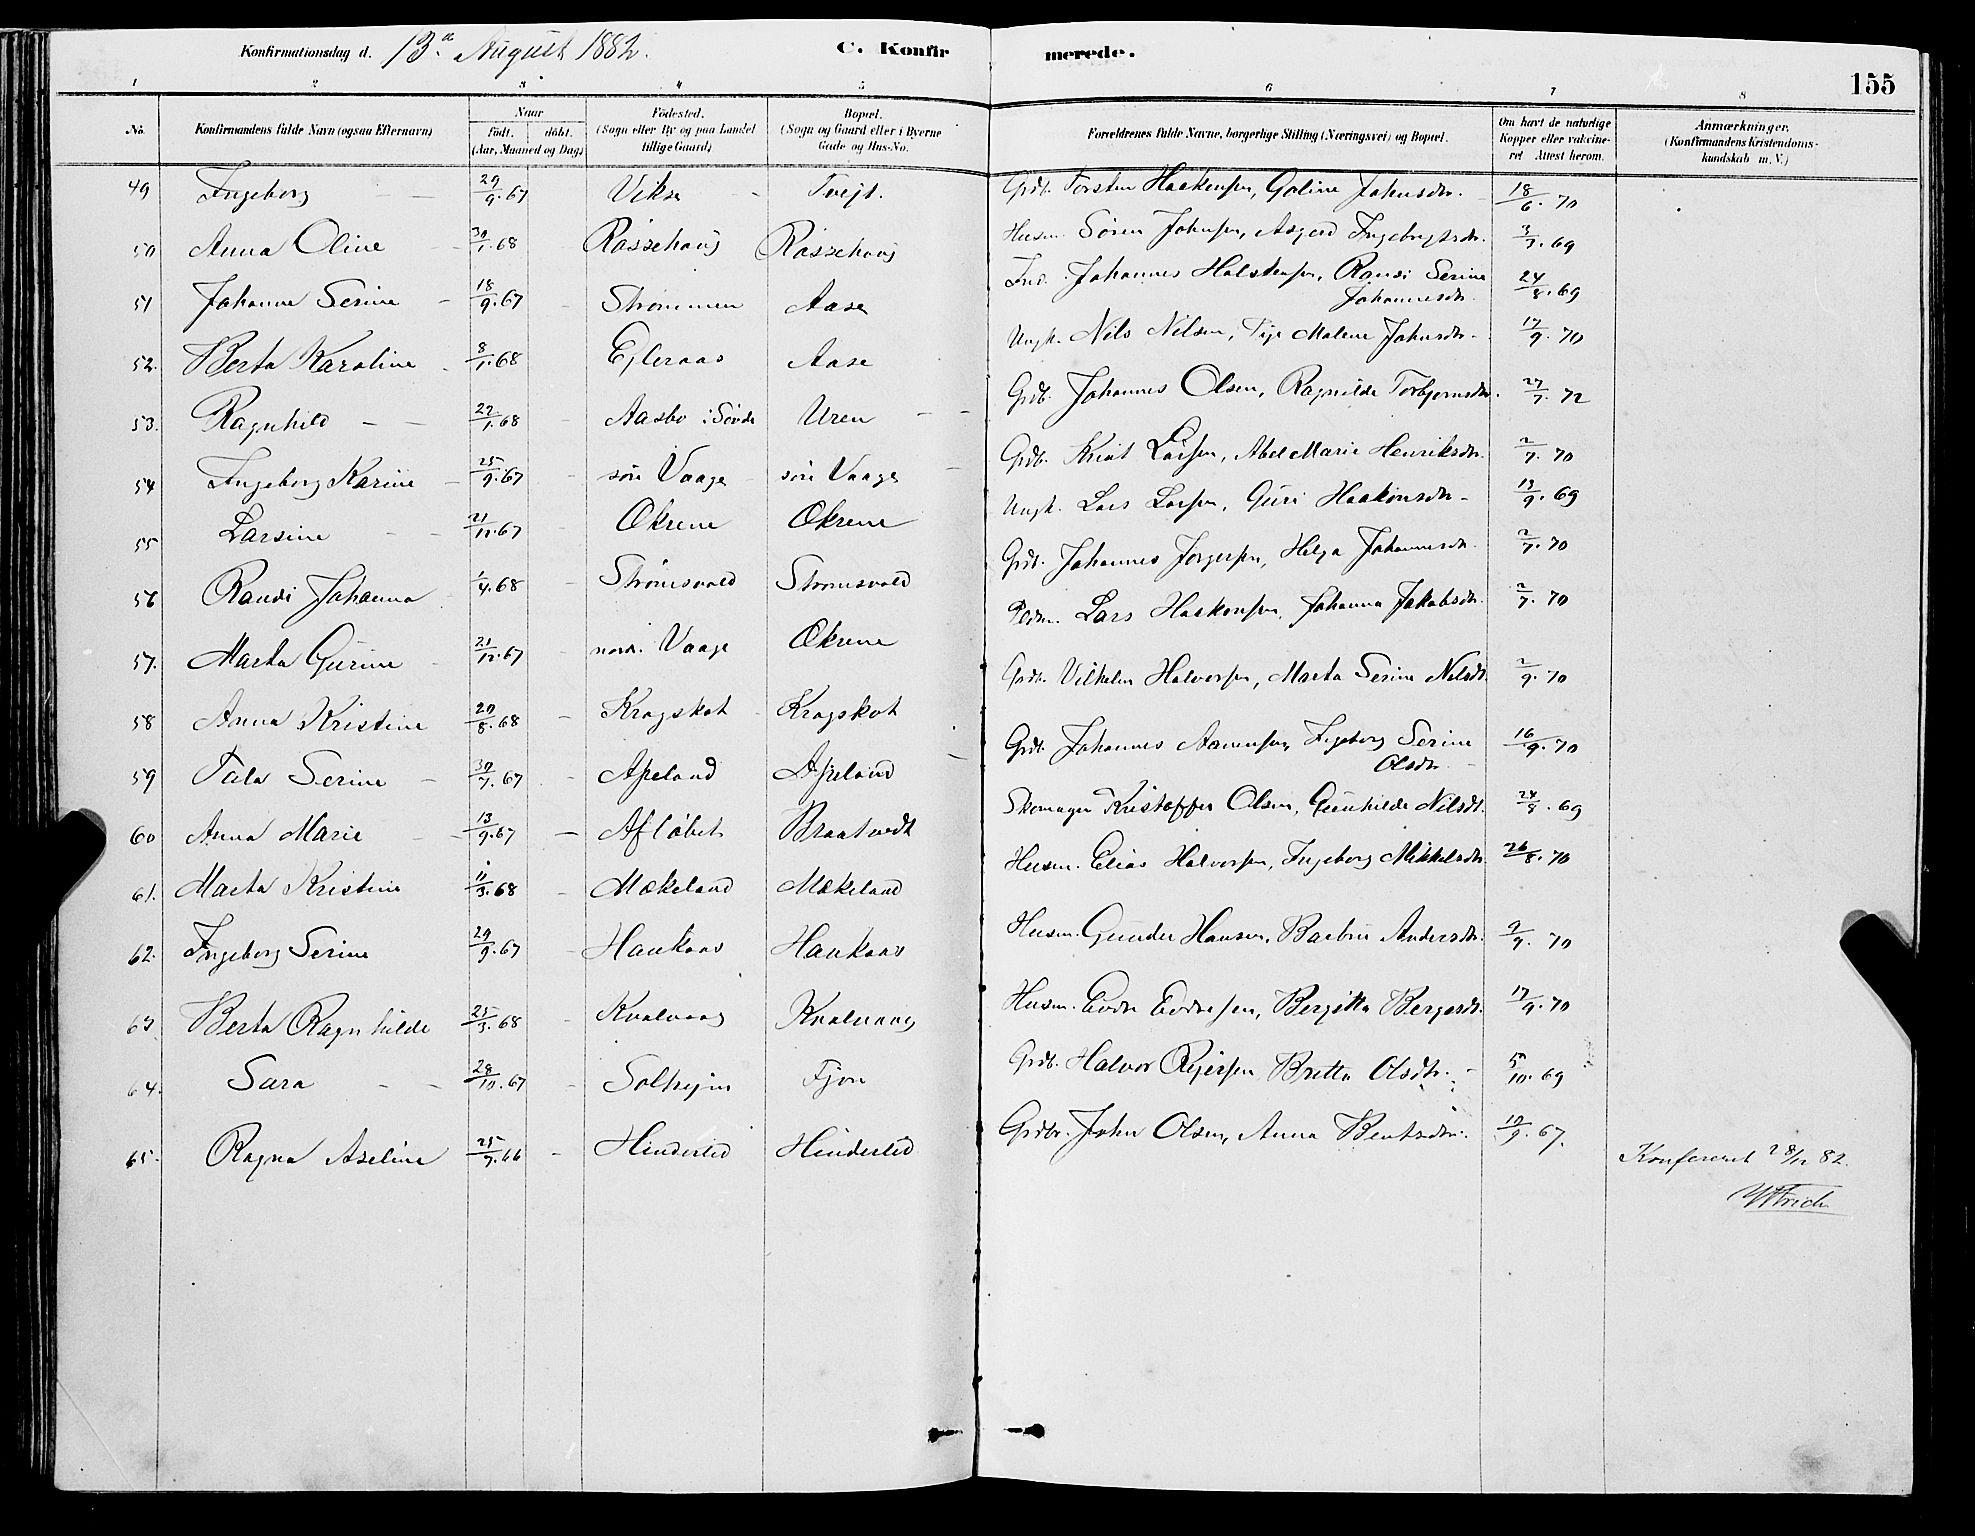 Konfirmationsdag d. 13.de August 1882. C. Konfir merede.
155
1 2 3 4 5 6 7 8
No. Konfirmandens fulde Navn (ogsaa Efternavn) Naar født. døbt. (Aar, Maaned og Dag) Fødested. (Sogn eller By og paa Landet tillige Gaard) Bopæl. (Sogn og Gaard eller i Byerne Gade og Hus-No. Forældrenes fulde Navne, borgerlige Stilling (Næringsvei) og Bopæl. Om havt de naturlige Kopper eller vakcineret Attest herom. Anmærkninger. (Konfirmandens Kristendomskundskab m. V.)
49 Ingeborg 29/9.67 Vikse Tvejt. Grdb. Torsten Haakensen, Goline Johnsdtr. 18/6.70
50 Anna Oline 30/1.68 Rossehaug Rossehaug Husm. Sören Johnsen, Asgerd Ingebrigtsdtr. 3/7.69
51 Johanne Serine 18/9.67 Strømmen Aase Ind. Johannes Halstensen, Randi Serine Johannesdtr. 24/8.69
52. Berta Karoline 8/1.68 Efteraas Aase Ungk. Nils Nilsen, Pige Malene Johnsdtr. 17/9.70
53. Ragnhild 22/1.68 Aasbo i Søvde Uren Grdb. Johannes Olsen, Ragnilde Torbjornsdtr. 27/7.72
54 Ingeborg Karine 25/9.67 søre Vaage søre Vaage Grdb. Knut Larsen, Abel Marie Henriksdtr. 2/7.70
55 Larsine 21/11.67 Økrene Økrene Ungk. Lars Larsen, Guri Haakonsdtr. 13/9.69
56 Randi Johanna 1/4.68 Strømsvold Strømsvold Grdb. Johannes Jorgersen, Helga Johannesdtr. 2/7.70
57. Marta Gurine 21/12.67 nord. Vaage Økrene Lars Haakonsen, Johanna Jakobsdtr. 2/7.70
58 Anna Kristine 20/8.68 Kragskot Kragskot Grdb. Vilhelm Halvorsen, Marta Serine Nilsdt. 2/9.70
59 Tala Serine 30/7.67 Apeland Apeland Grdb. Johannes Aanensen, Ingeborg Serine Olsdtr. 16/9.70
60 Anna Marie 13/9.67 Afløbet Braatvedt Skomager Kristoffer Olsen, Gunhilde Nilsdt. 24/8.69
61. Marta Kristine 11/3.68 Mækeland Mækeland Husm. Elias Halvorsen, Ingeborg Mikkelsdtr. 26/8.70
62. Ingeborg Serine 29/9.67 Haukaas Haukaas Husm. Gunder Hansen, Barbru Andersdtr. 2/9.70
63 Berta Ragnhilde 25/3.68 Kvalvaag Kvalvaag Husm. Endre Endresen, Bergitta Bergesdt. 17/9.70
64. Sara 28/10.67 Solhejm Fjon Grdb. Halvor Rejersen Britta Olsdtr. 5/10.69
65. Ragna Aseline 25/7.66 Hinderlid Hinderlid Grdbr. John Olsen, Anna Bentsdtr. 10/9.67.
Konfereret 28/12 82.